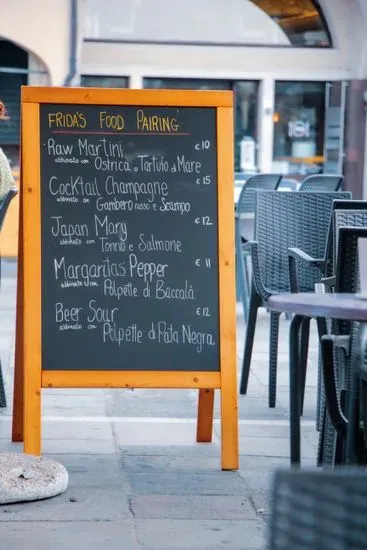 FRIDA'S FOOD PAIRING
RAW MARTINI €10
abbinato con Ostrica o Tartufo di Mare
COCKTAIL CHAMPAGNE €15
abbinato con Gambero rosso e Scampo
JAPAN MARY €12
abbinato con Tonno e Salmone
MARGARITAS PEPPER €11
abbinato con Polpette di Baccalà
BEER SOUR €12
abbinato con Polpette di Pata Negra